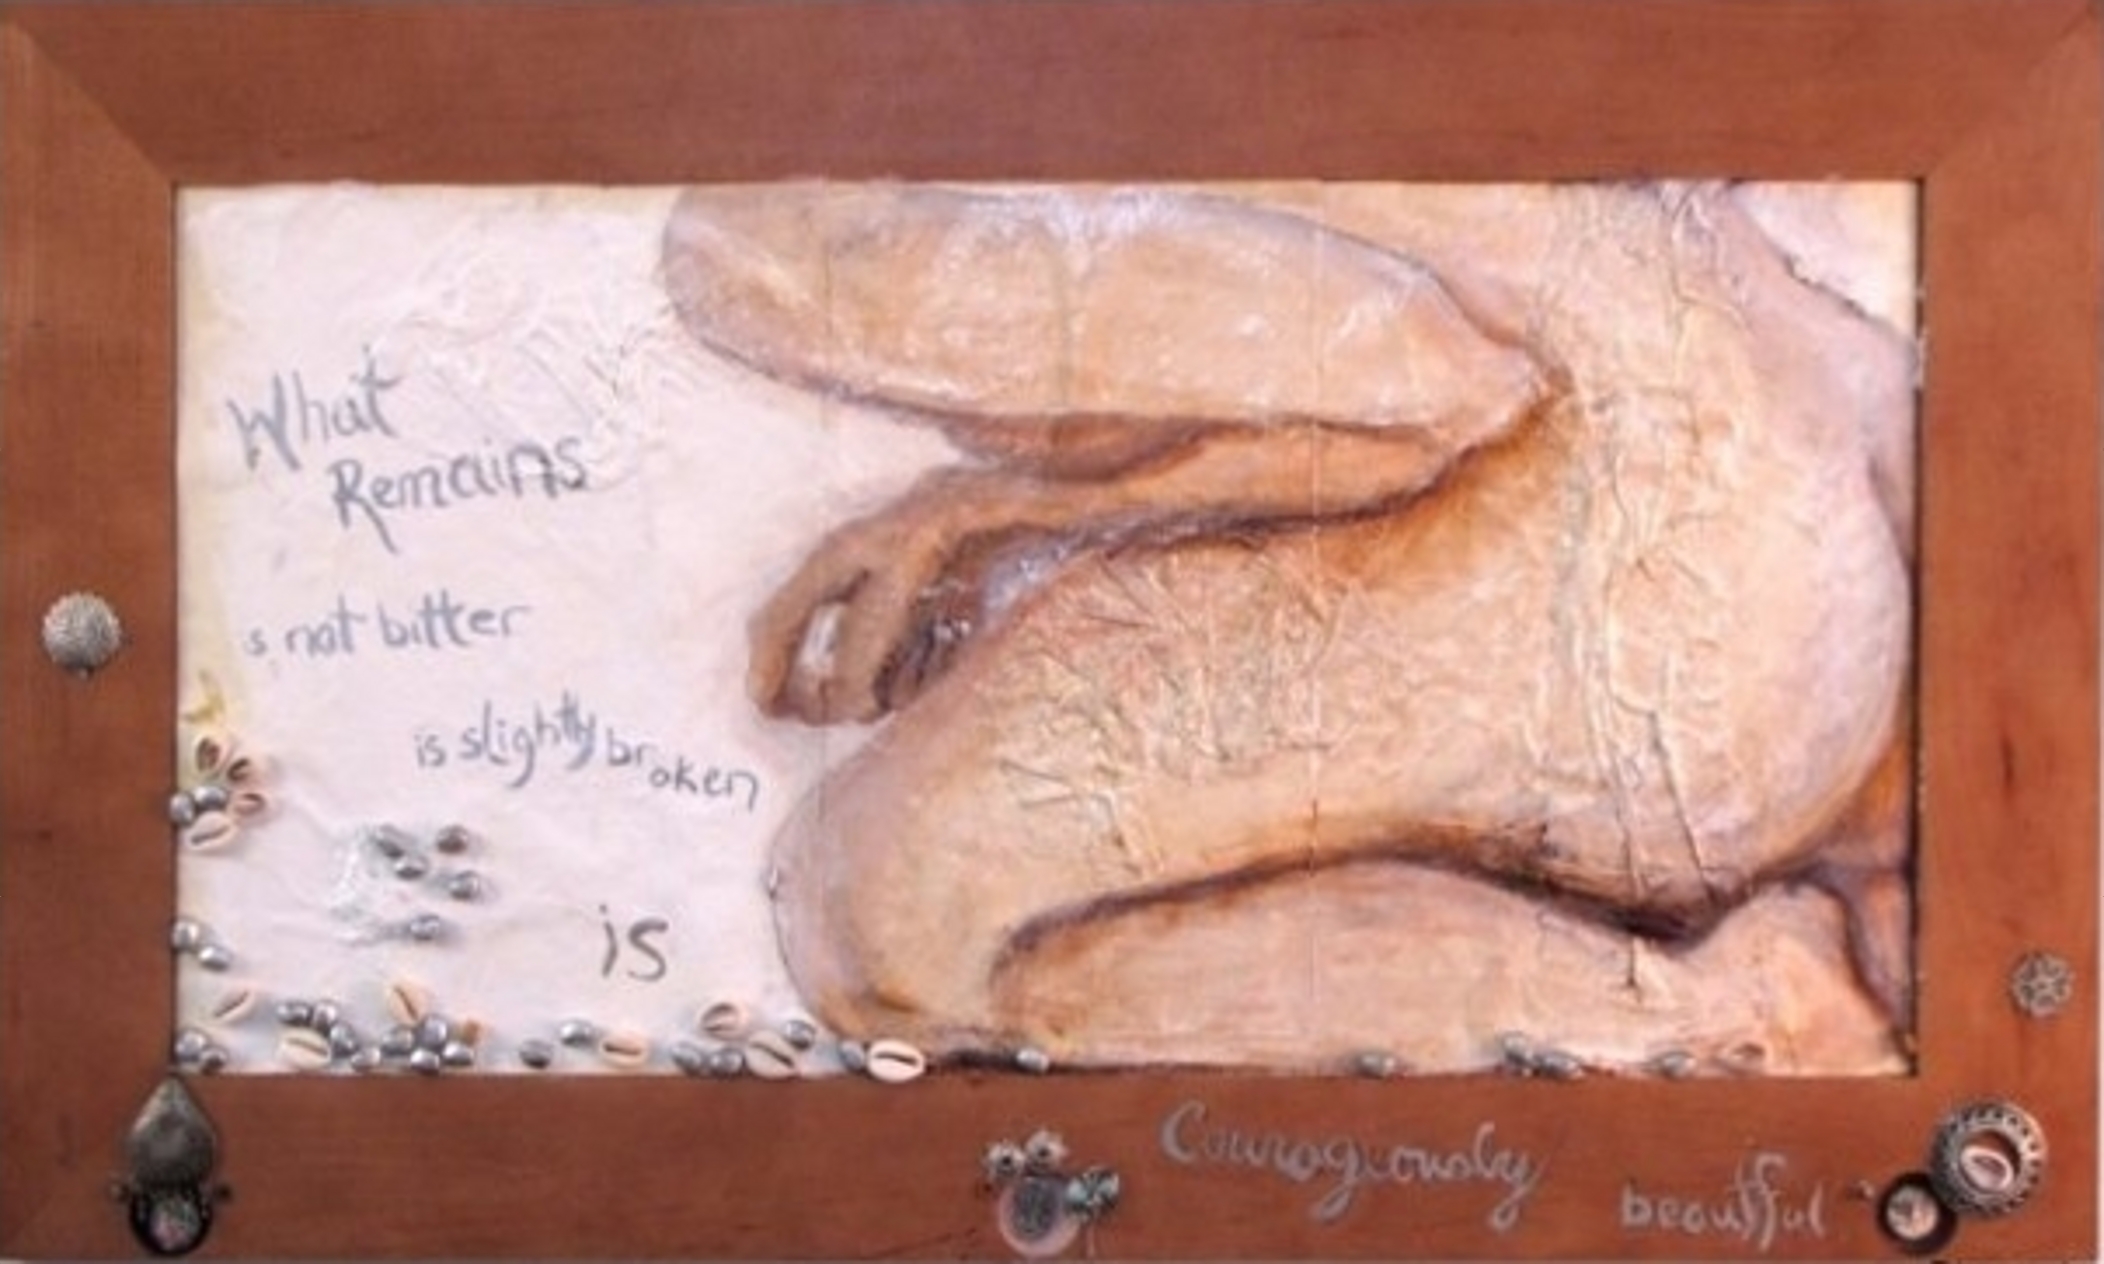 What
Remains
s not bitter
is slightly broken
is
Courageously
beautiful